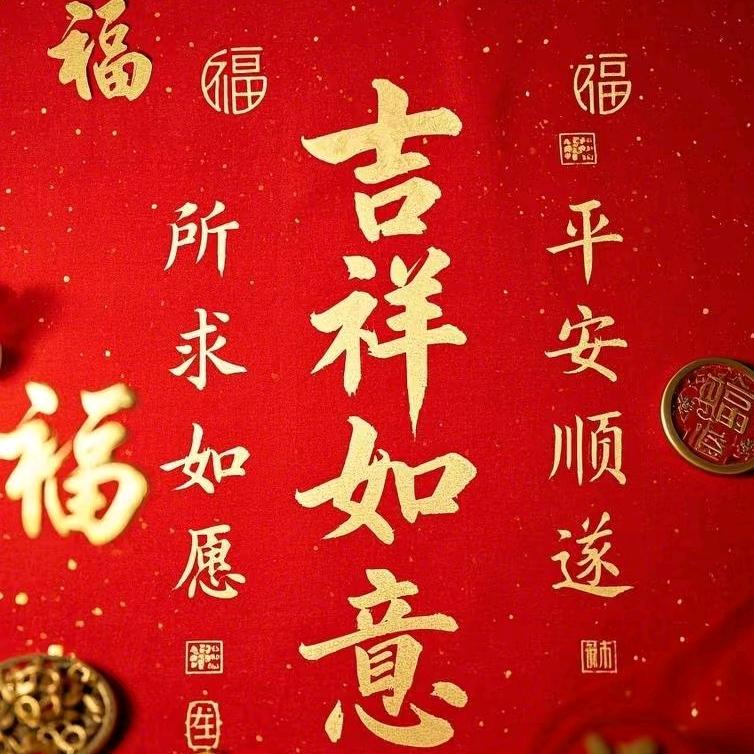 福
福
福
平安顺遂
吉祥如意
所求如愿
福